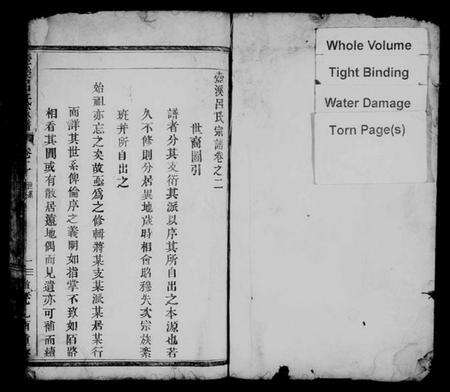 壺溪呂氏宗譜卷之二
世裔圖引
譜者分其支衍其派以序其所自出之本源也若
久不修則分居異地歲時相會昭穆失次宗族紊
班并所自出之
始祖亦忘之矣故亟為之修輯將某支某派某君某行
而詳其世系俾倫序之義明如指掌不致如陌路
相看其間或有散居遠地偶而見遺亦可補而續
Whole Volume
Tight Binding
Water Damage
Torn Page(s)